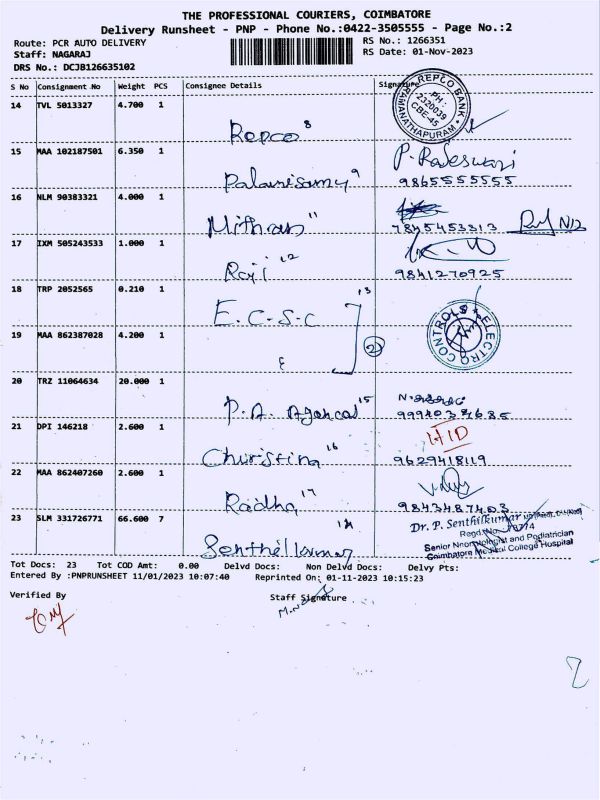 THE PROFESSIONAL COURIERS, COIMBATORE
Delivery Runsheet - PNP - Phone No.:0422-3505555 - Page No.:2
Route: PCR AUTO DELIVERY
RS No.: 1266351
Staff: NAGARAJ
RS Date: 01-Nov-2023
DRS No.: DCJB126635102
S No Consignment No Weight PCS Consignee Details Signature
14 TVL 5013327 4.700 1 Repco 8
REPCO BANK PH: 2320039 CBE-45 RAMANATHAPURAM
15 MAA 102187501 6.350 1 Palanisamy 9 P. Rajeswari
9865555555
16 NLM 90383321 4.000 1 Mithran 11 7845453313
17 IXM 505243533 1.000 1 Raji 12 9841270925
18 TRP 2052565 0.210 1 E.C.S.C 13
CONTROLS ELECTRO
19 MAA 862387028 4.200 1 2
20 TRZ 11064634 20.000 1 P.A. Agencal 15
21 DPI 146218 2.600 1 Christina 16 HID
9629418119
22 MAA 862407260 2.600 1 Radha 17
9843487403
23 SLM 331726771 66.600 7 Senthil kumar
Dr. P. Senthilkumar
Senior Neonatologist and Pediatrician
Coimbatore Medical College Hospital
Tot Docs: 23 Tot COD Amt: 0.00 Delvd Docs: Non Delvd Docs: Delvy Pts:
Entered By :PNPRUNSHEET 11/01/2023 10:07:40 Reprinted On: 01-11-2023 10:15:23
Verified By
Staff Signature